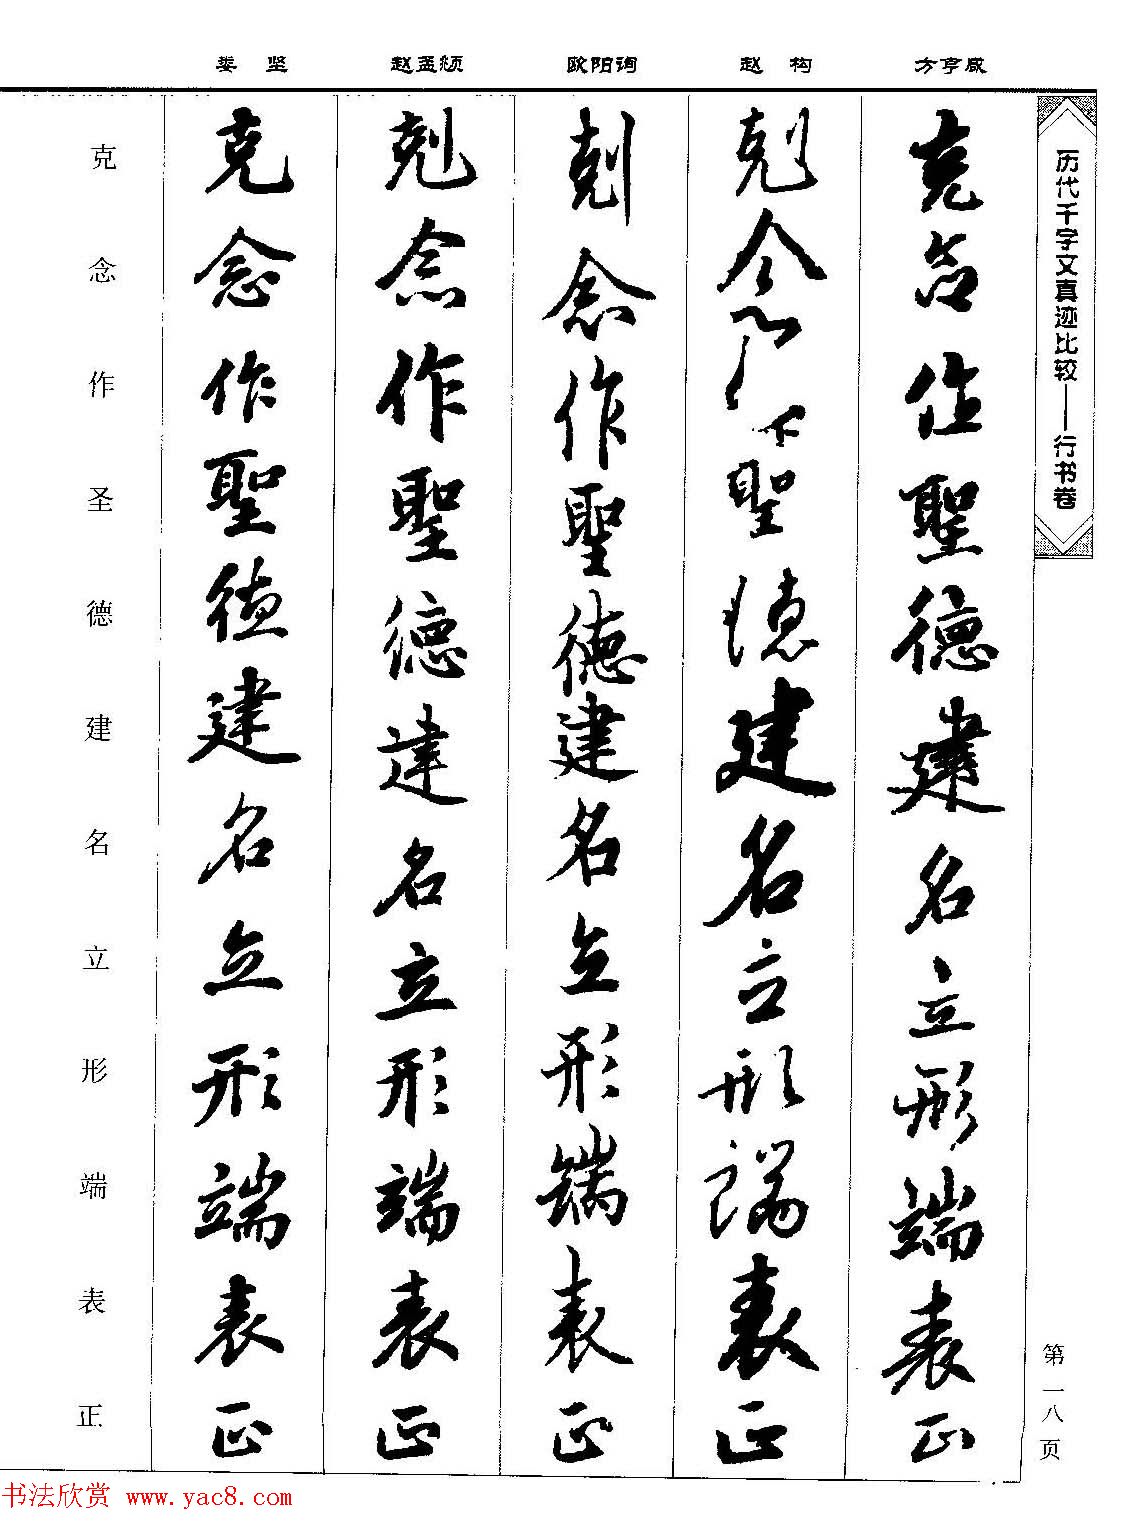 历代千字文真迹比较——行书卷
第一八页
方亨咸
克念作聖德建名立形端表正
赵构
剋念作聖德建名立形端表正
欧阳询
剋念作聖德建名立形端表正
赵孟頫
剋念作聖德建名立形端表正
娄坚
克念作聖德建名立形端表正
克念作圣德建名立形端表正
书法欣赏 www.yac8.com